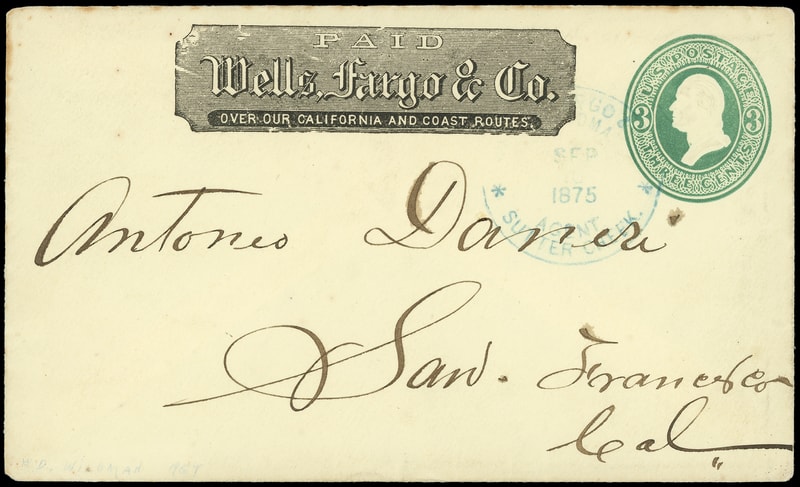 PAID
Wells, Fargo & Co.
OVER OUR CALIFORNIA AND COAST ROUTES.
U.S. POSTAGE
3 3
THREE CENTS
SEP
1875
AGENT
SUTTER CREEK.
Antonio Daneri
San. Francisco
Cal